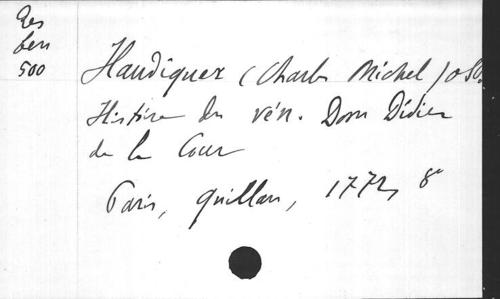 Res
ben
500
Haudiquer (Charles Michel) OSB.
Histoire du vén. Dom Didier
de la Cour
Paris, Quillau, 1772, 8°